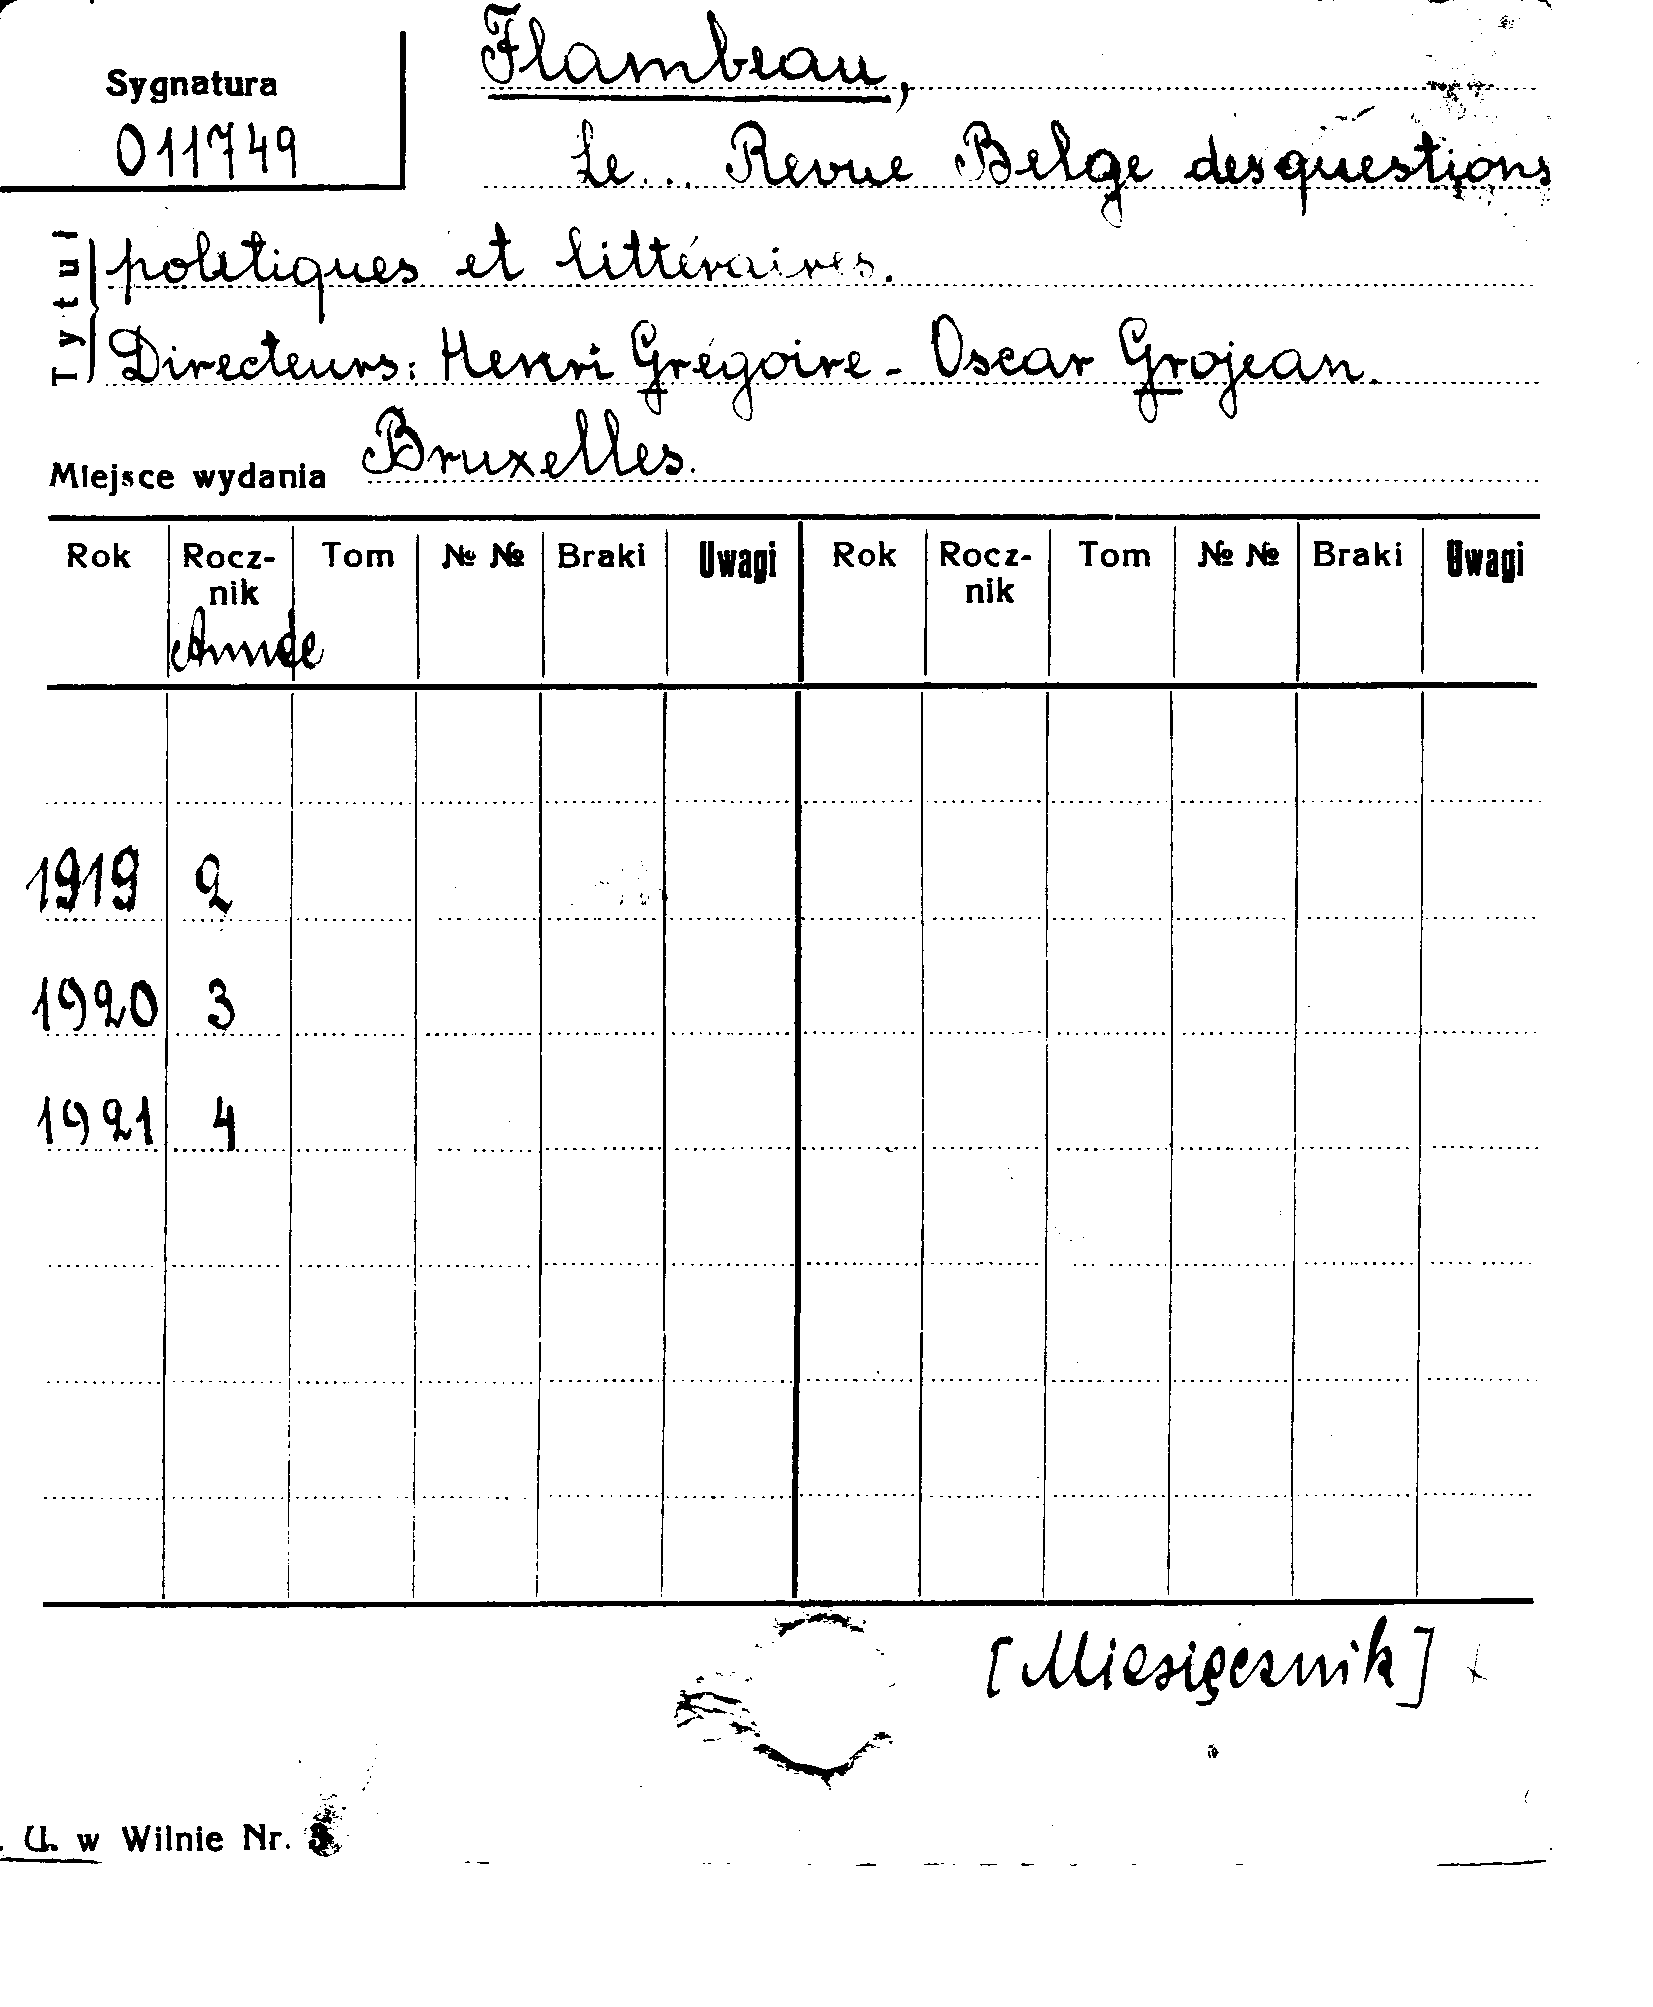 Flambeau,
Sygnatura
011749
Le... Revue Belge des questions
Tytuł
politiques et littéraires.
Directeurs: Henri Grégoire - Oscar Grojean.
Miejsce wydania Bruxelles.
Rok Rocz-nik Tom № № Braki Uwagi Rok Rocz-nik Tom № № Braki Uwagi
Année
1919 2
1920 3
1921 4
[Miesięcznik]
. U. w Wilnie Nr.